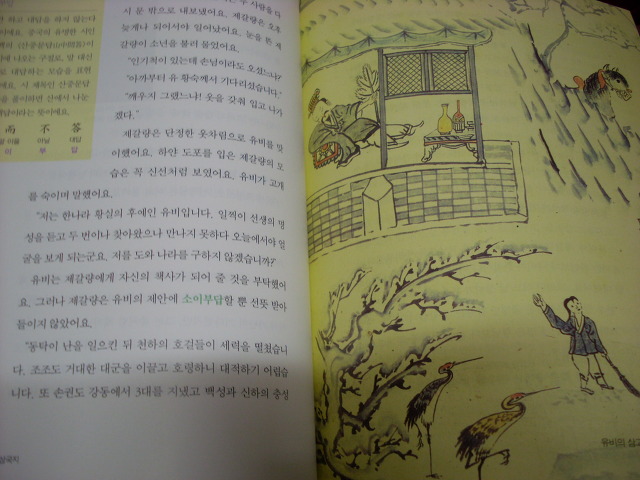 하고 대답을 하지 않는다
중국의 유명한 시인
(산중문답(山中問答))이
나오는 구절로, 말 대신
대답하는 모습을 표현
시 제목인 산중문답
풀이하면 산에서 나눈
이라는 뜻이에요.
而 不 答
말 이을 아닐 대답
이 부 답
두 사람을 다
시 문 밖으로 내보냈어요. 제갈량은 오후
늦게나 되어서야 일어났어요. 눈을 뜬 제
갈량이 소년을 불러 물었어요.
"인기척이 있는데 손님이라도 오셨느냐?"
"아까부터 유 황숙께서 기다리셨습니다."
"깨우지 그랬느냐! 옷을 갖춰 입고 나가
겠다."
제갈량은 단정한 옷차림으로 유비를 맞
이했어요. 하얀 도포를 입은 제갈량의 모
습은 꼭 신선처럼 보였어요. 유비가 고개
를 숙이며 말했어요.
"저는 한나라 황실의 후예인 유비입니다. 일찍이 선생의 명
성을 듣고 두 번이나 찾아왔으나 만나지 못하다 오늘에서야 얼
굴을 보게 되는군요. 저를 도와 나라를 구하지 않겠습니까?"
유비는 제갈량에게 자신의 책사가 되어 줄 것을 부탁했어
요. 그러나 제갈량은 유비의 제안에 소이부답할 뿐 선뜻 받아
들이지 않았어요.
"동탁이 난을 일으킨 뒤 천하의 호걸들이 세력을 떨쳤습니
다. 조조도 거대한 대군을 이끌고 호령하니 대적하기 어렵습
니다. 또 손권도 강동에서 3대를 지냈고 백성과 신하의 충성
삼국지
유비의 삼고